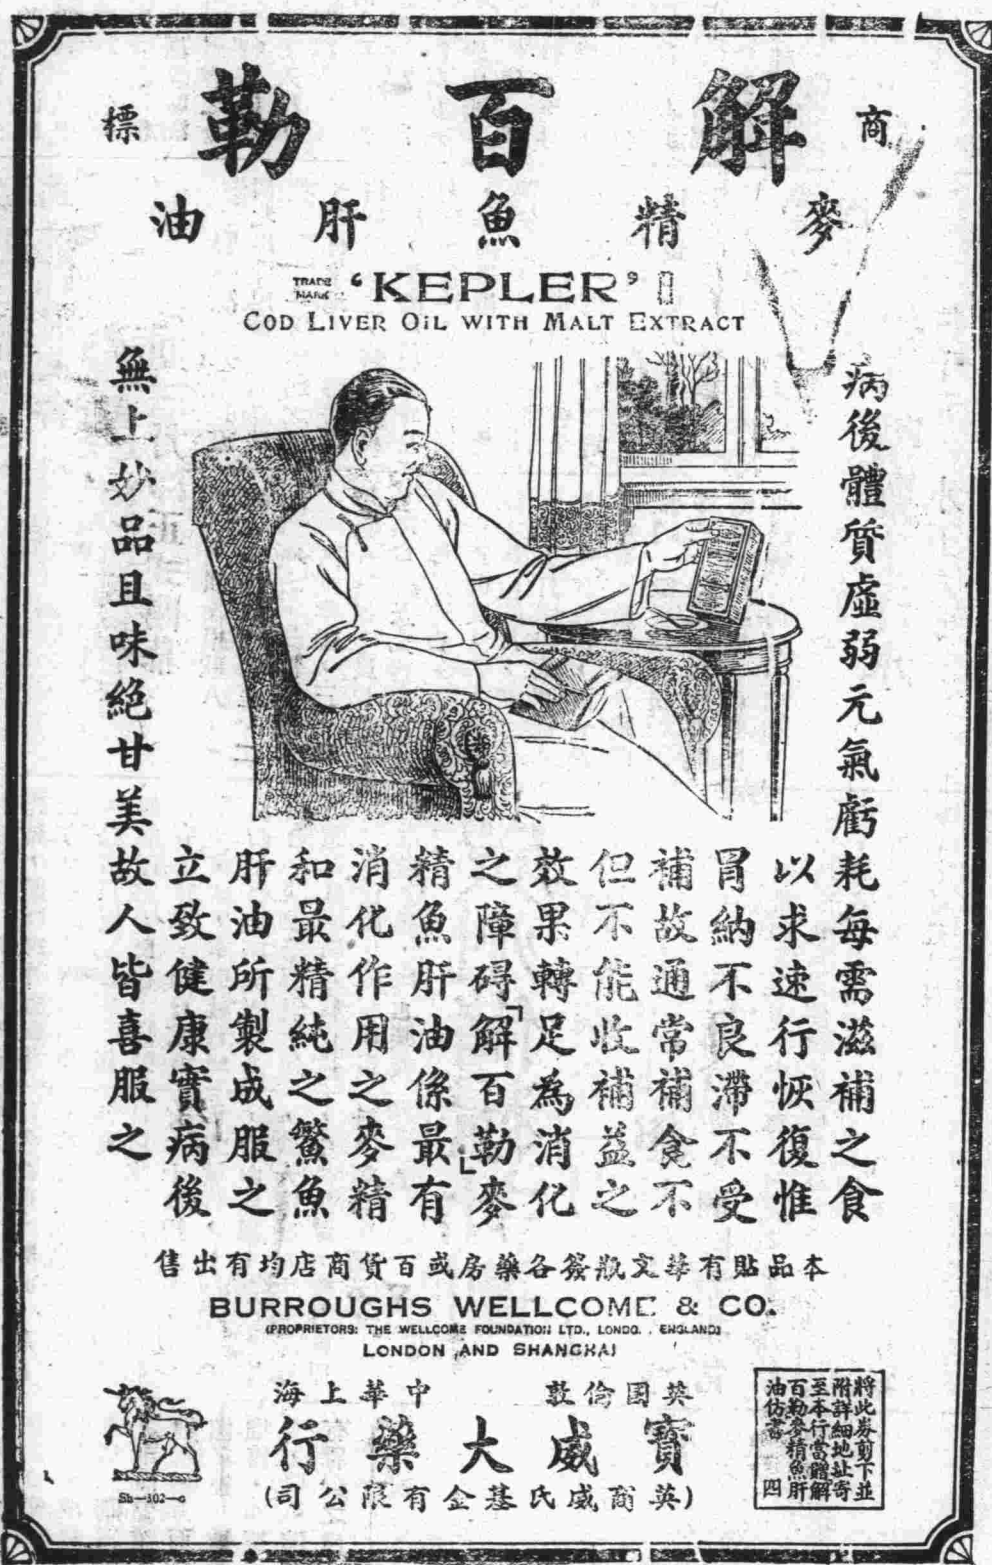 商 解百勒 標
麥精魚肝油
TRADE MARK 'KEPLER'
COD LIVER OIL WITH MALT EXTRACT
病後體質虛弱元氣虧耗每需滋補之食
以求速行恢復惟
胃納不良滯不受
補故通常補食不
但不能收補益之
效果轉足為消化
之障碍「解百勒」麥
精魚肝油係最有
消化作用之麥精
和最精純之鰵魚
肝油所製成服之
立致健康實病後
無上妙品且味絕甘美故人皆喜服之
本品貼有華文瓶簽各藥房或百貨商店均有出售
BURROUGHS WELLCOME & CO.
(PROPRIETORS: THE WELLCOME FOUNDATION LTD., LONDON, ENGLAND)
LONDON AND SHANGHAI
英国倫敦 中華上海
寶威大藥行
(英商威氏基金有限公司)
Sh—102—c
將此券剪下並
附詳細地址寄
至本行當體解
百勒麥精魚肝
油仿書 四